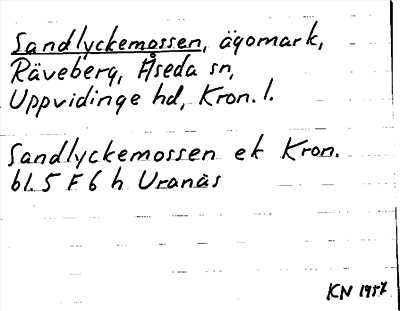 Sandlyckemossen, ägomark,
Räveberg, Åseda sn,
Uppvidinge hd, Kron. l.
Sandlyckemossen ek Kron.
bl. 5 F 6 h Uranäs
KN 1957